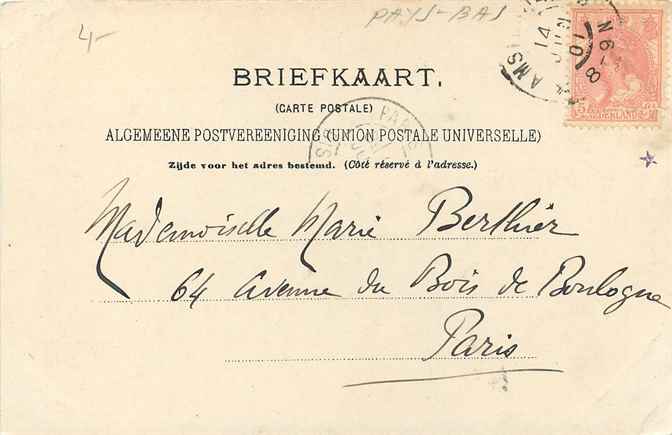 4-
PAYS-BAS
AMS
14 JUN 01
8-9 N
5 Ct
NEDERLAND
BRIEFKAART.
(CARTE POSTALE)
ALGEMEENE POSTVEREENIGING (UNION POSTALE UNIVERSELLE)
Zijde voor het adres bestemd. (Côté réservé à l'adresse.)
PARIS
Mademoiselle Marie Berthier
64 Avenue du Bois de Boulogne
Paris